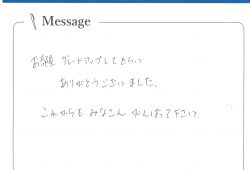 Message
お部屋 グレードアップしてもらい
ありがとうございました。
これからも みなさん がんばって下さい